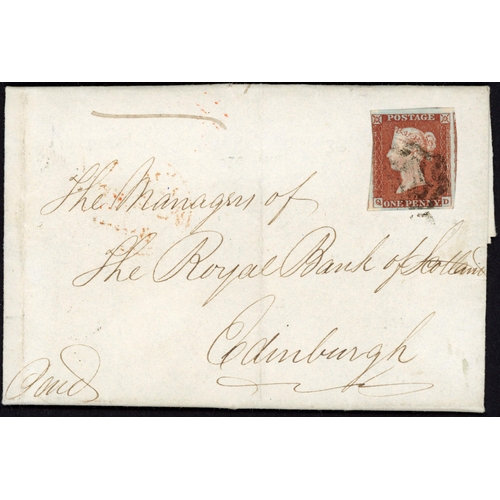 POSTAGE
Q ONE PENNY D
The Managers of
The Royal Bank of Scotland
Edinburgh
Paid